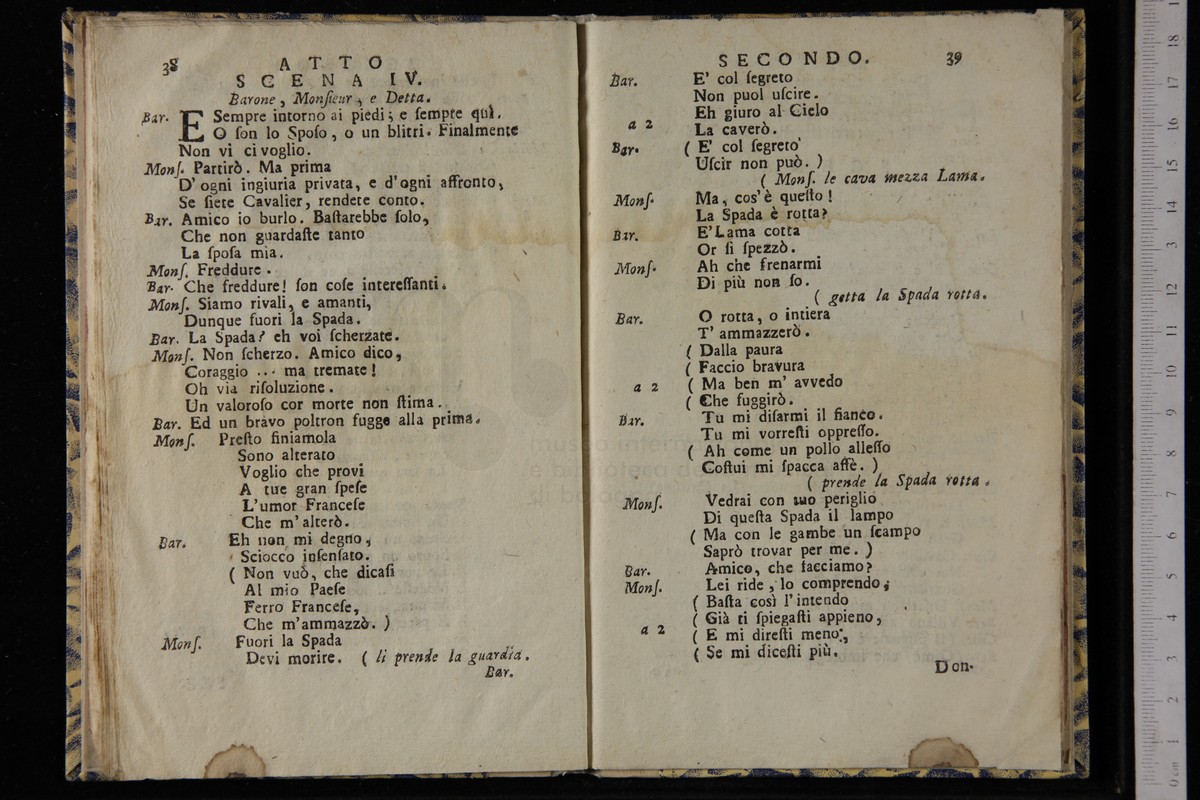 38
ATTO
SCENA IV.
Barone, Monſieur, e Detta.
Bar. E Sempre intorno ai piedi; e ſempre quì.
O ſon lo Spoſo, o un blitri. Finalmente
Non vi ci voglio.
Monſ. Partirò. Ma prima
D' ogni ingiuria privata, e d'ogni affronto,
Se ſiete Cavalier, rendete conto.
Bar. Amico io burlo. Baſtarebbe ſolo,
Che non guardaſte tanto
La ſpoſa mia.
Monſ. Freddure.
Bar. Che freddure! ſon coſe intereſſanti.
Monſ. Siamo rivali, e amanti,
Dunque fuori la Spada.
Bar. La Spada? eh voi ſcherzate.
Monſ. Non ſcherzo. Amico dico,
Coraggio ... ma tremate!
Oh via riſoluzione.
Un valoroſo cor morte non ſtima.
Bar. Ed un bravo poltron fugge alla prima.
Monſ. Preſto finiamola
Sono alterato
Voglio che provi
A tue gran ſpeſe
L'umor Franceſe
Che m'alterò.
Bar. Eh non mi degno,
Sciocco inſenſato.
( Non vuò, che dicaſi
Al mio Paeſe
Ferro Franceſe,
Che m'ammazzò. )
Monſ. Fuori la Spada
Devi morire. ( li prende la guardia.
Bar.
SECONDO. 39
Bar. E' col ſegreto
Non puol uſcire.
Eh giuro al Cielo
a 2 La caverò.
Bar. ( E' col ſegreto
Uſcir non può. )
( Monſ. le cava mezza Lama.
Monſ. Ma, cos'è queſto!
La Spada è rotta?
Bar. E'Lama cotta
Or ſi ſpezzò.
Monſ. Ah che frenarmi
Di più non ſo.
( getta la Spada rotta.
Bar. O rotta, o intiera
T' ammazzerò.
( Dalla paura
( Faccio bravura
a 2 ( Ma ben m' avvedo
( Che fuggirò.
Bar. Tu mi diſarmi il fianco.
Tu mi vorreſti oppreſſo.
( Ah come un pollo alleſſo
Coſtui mi ſpacca affè. )
( prende la Spada rotta.
Monſ. Vedrai con tuo periglio
Di queſta Spada il lampo
( Ma con le gambe un ſcampo
Saprò trovar per me. )
Bar. Amico, che facciamo?
Monſ. Lei ride, lo comprendo;
( Baſta così l'intendo
( Già ti ſpiegaſti appieno,
a 2 ( E mi direſti meno,
( Se mi diceſti più.
Don-